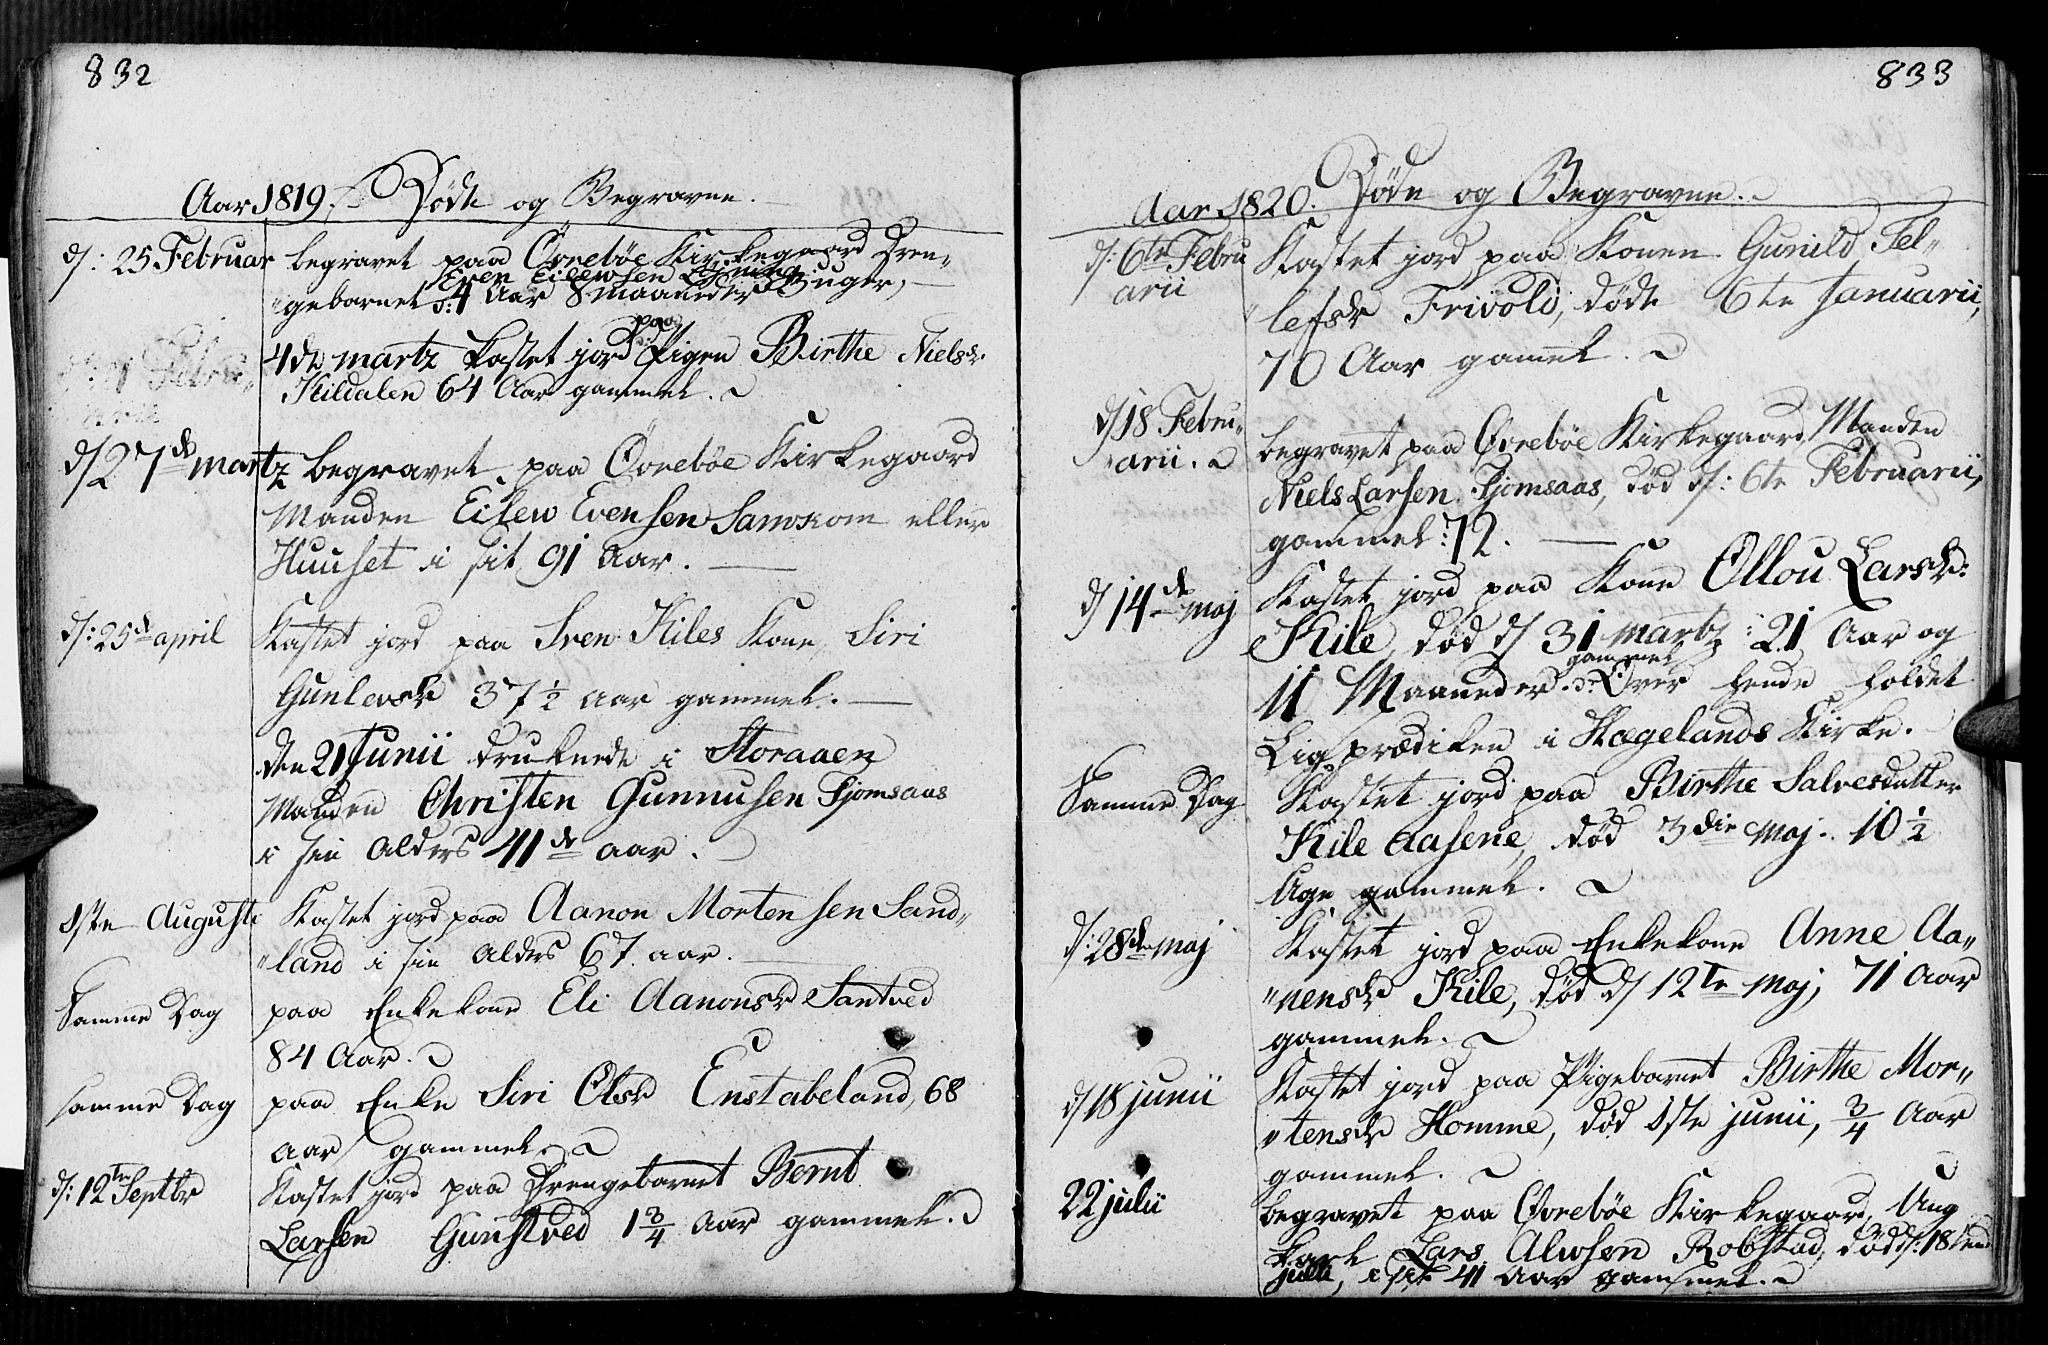 832
Aar 1819. Døde og Begravne.
d: 25 Februar begravet paa Øvrebøe Kirkegaard Dren„
Even Eilewsen
„gebarnet 4 Aar 8 maaneder 3 Uger,
4de martz kastet jord paa Pigen Birthe Nielsdr
Kildalen 64 Aar gammel.
d/ 27de martz begravet paa Øvrebøe Kirkegaard
Manden Eilew Evensen Samkom eller
Huuset i sit 91 Aar.
d: 25de april Kastet jord paa Sven Kiles Kone, Siri
Gunlevsdr 37 1/2 aar gammel.
den 21 Junii druknede i Storaaen
Manden Christen Gunnusen Fjomsaas
i sin Alders 41de aar.
1ste Augusti Kastet jord paa Aanon Mortensen Sand„
„land i sin Alders 67 aar.
Samme Dag paa Enkekone Eli Aanonsdr Santved
84 Aar.
samme Dag paa Enke Siri Olsdr Enstabeland, 68
aar gammel.
d: 12te Septbr Kastet jord paa Drengebarnet Bernt
Larsen Gunstved 1 3/4 Aar gammel.
833
Aar 1820. Døde og Begravne.
d: 6te Febru Kastet jord paa Konen Gunild Tel„
arii „lefsdr Frivold, døde 6te Januarii,
70 Aar gamel.
d/ 18 Febru„ begravet paa Øvrebøe Kirkegaard Manden
arii. Niels Larsen Fjomsaas, død d: 6te Februarii,
gammel: 72.
d/ 14de maj Kastet jord paa Kone Ollou Larsdr:
Kile, død d/ 31 martz 21 Aar og
gammel
11 Maaneder. Over hende holdet
Ligprædiken i Hægelands Kirke.
Samme Dag Kastet jord paa Birthe Salvesdatter
Kile Aasene, død 3die Maj. 10 1/2
Uge gammel.
d: 28de maj Kastet jord paa Enkekone Anne Aa„
„nensdr Kile, død d/ 12te Maj, 71 Aar
gammel.
d/ 18 junii Kastet jord paa Pigebarnet Birthe Mor„
„tensdr Homme, død 1ste junii, 3/4 Aar
gammel.
22 julii begravet paa Øvrebøe Kirkegaard, Ung
Karl Lars Alwsen Robstad, død d: 18
julii, i sit 41 Aar gammel.